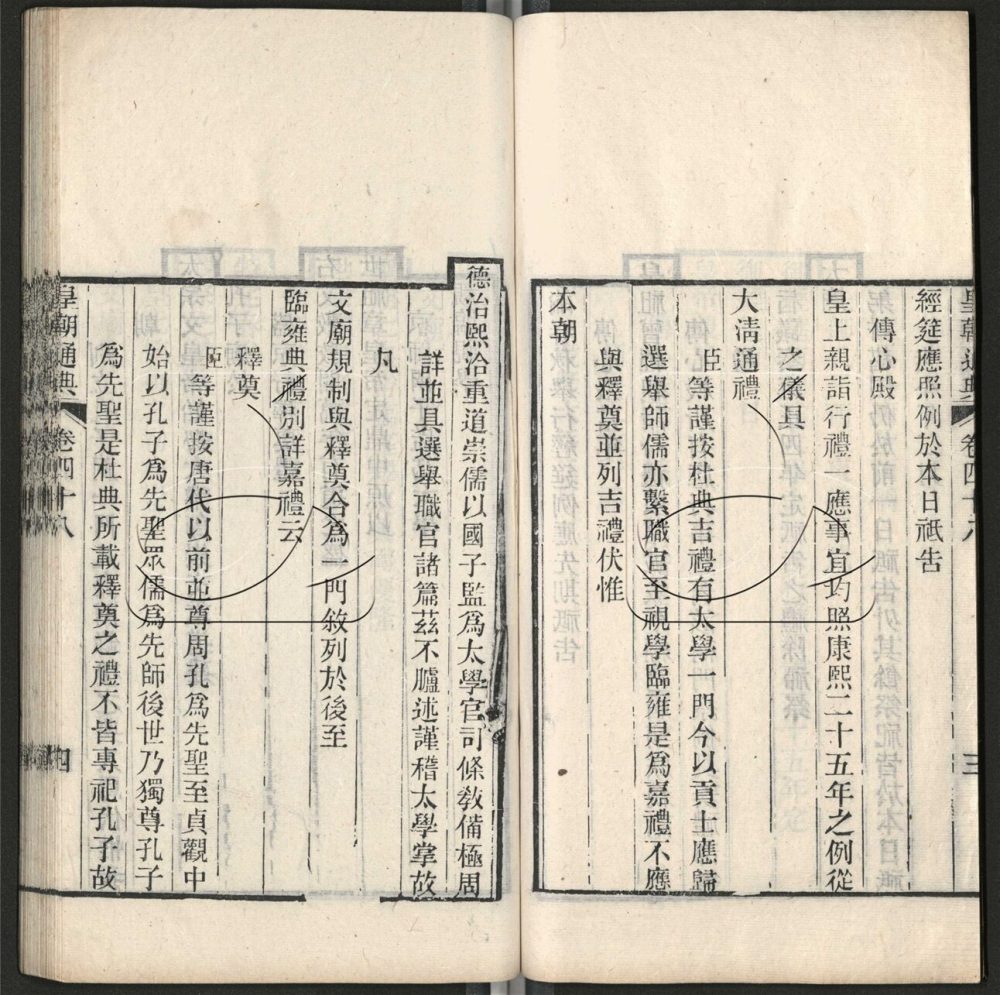 皇朝通典 卷四十八 三
經筵應照例於本日祗告
傳心殿
皇上親詣行禮一應事宜均照康熙二十五年之例從
之儀具
大清通禮
臣等謹按杜典吉禮有太學一門今以貢士應歸
選舉師儒亦繫職官至視學臨雍是爲嘉禮不應
與釋奠並列吉禮伏惟
本朝
德洽熙洽重道崇儒以國子監爲太學官司條教備極周
詳並具選舉職官諸篇茲不臚述謹稽太學掌故
凡
文廟規制與釋奠合爲一門敘列於後至
臨雍典禮別詳嘉禮云
釋奠
臣等謹按唐代以前並尊周孔爲先聖至貞觀中
始以孔子爲先聖眾儒爲先師後世乃獨尊孔子
爲先聖是杜典所載釋奠之禮不皆專祀孔子故
皇朝通典 卷四十八 四